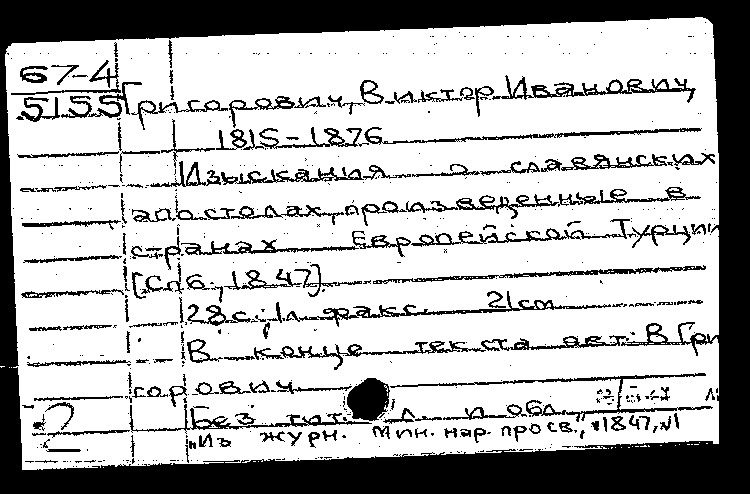 67-4
5155
Григорович, Виктор Иванович,
1815-1876
Изыскания о славянских
апостолах, произведенные в
странах Европейской Турции
[Спб., 1847]
28с.; 1л. факс. 21cm
В конце текста авт: В Гри
горович.
Без тит. л. и обл.,
2
„Из журн. Мин. нар. просв.", 1847, №1